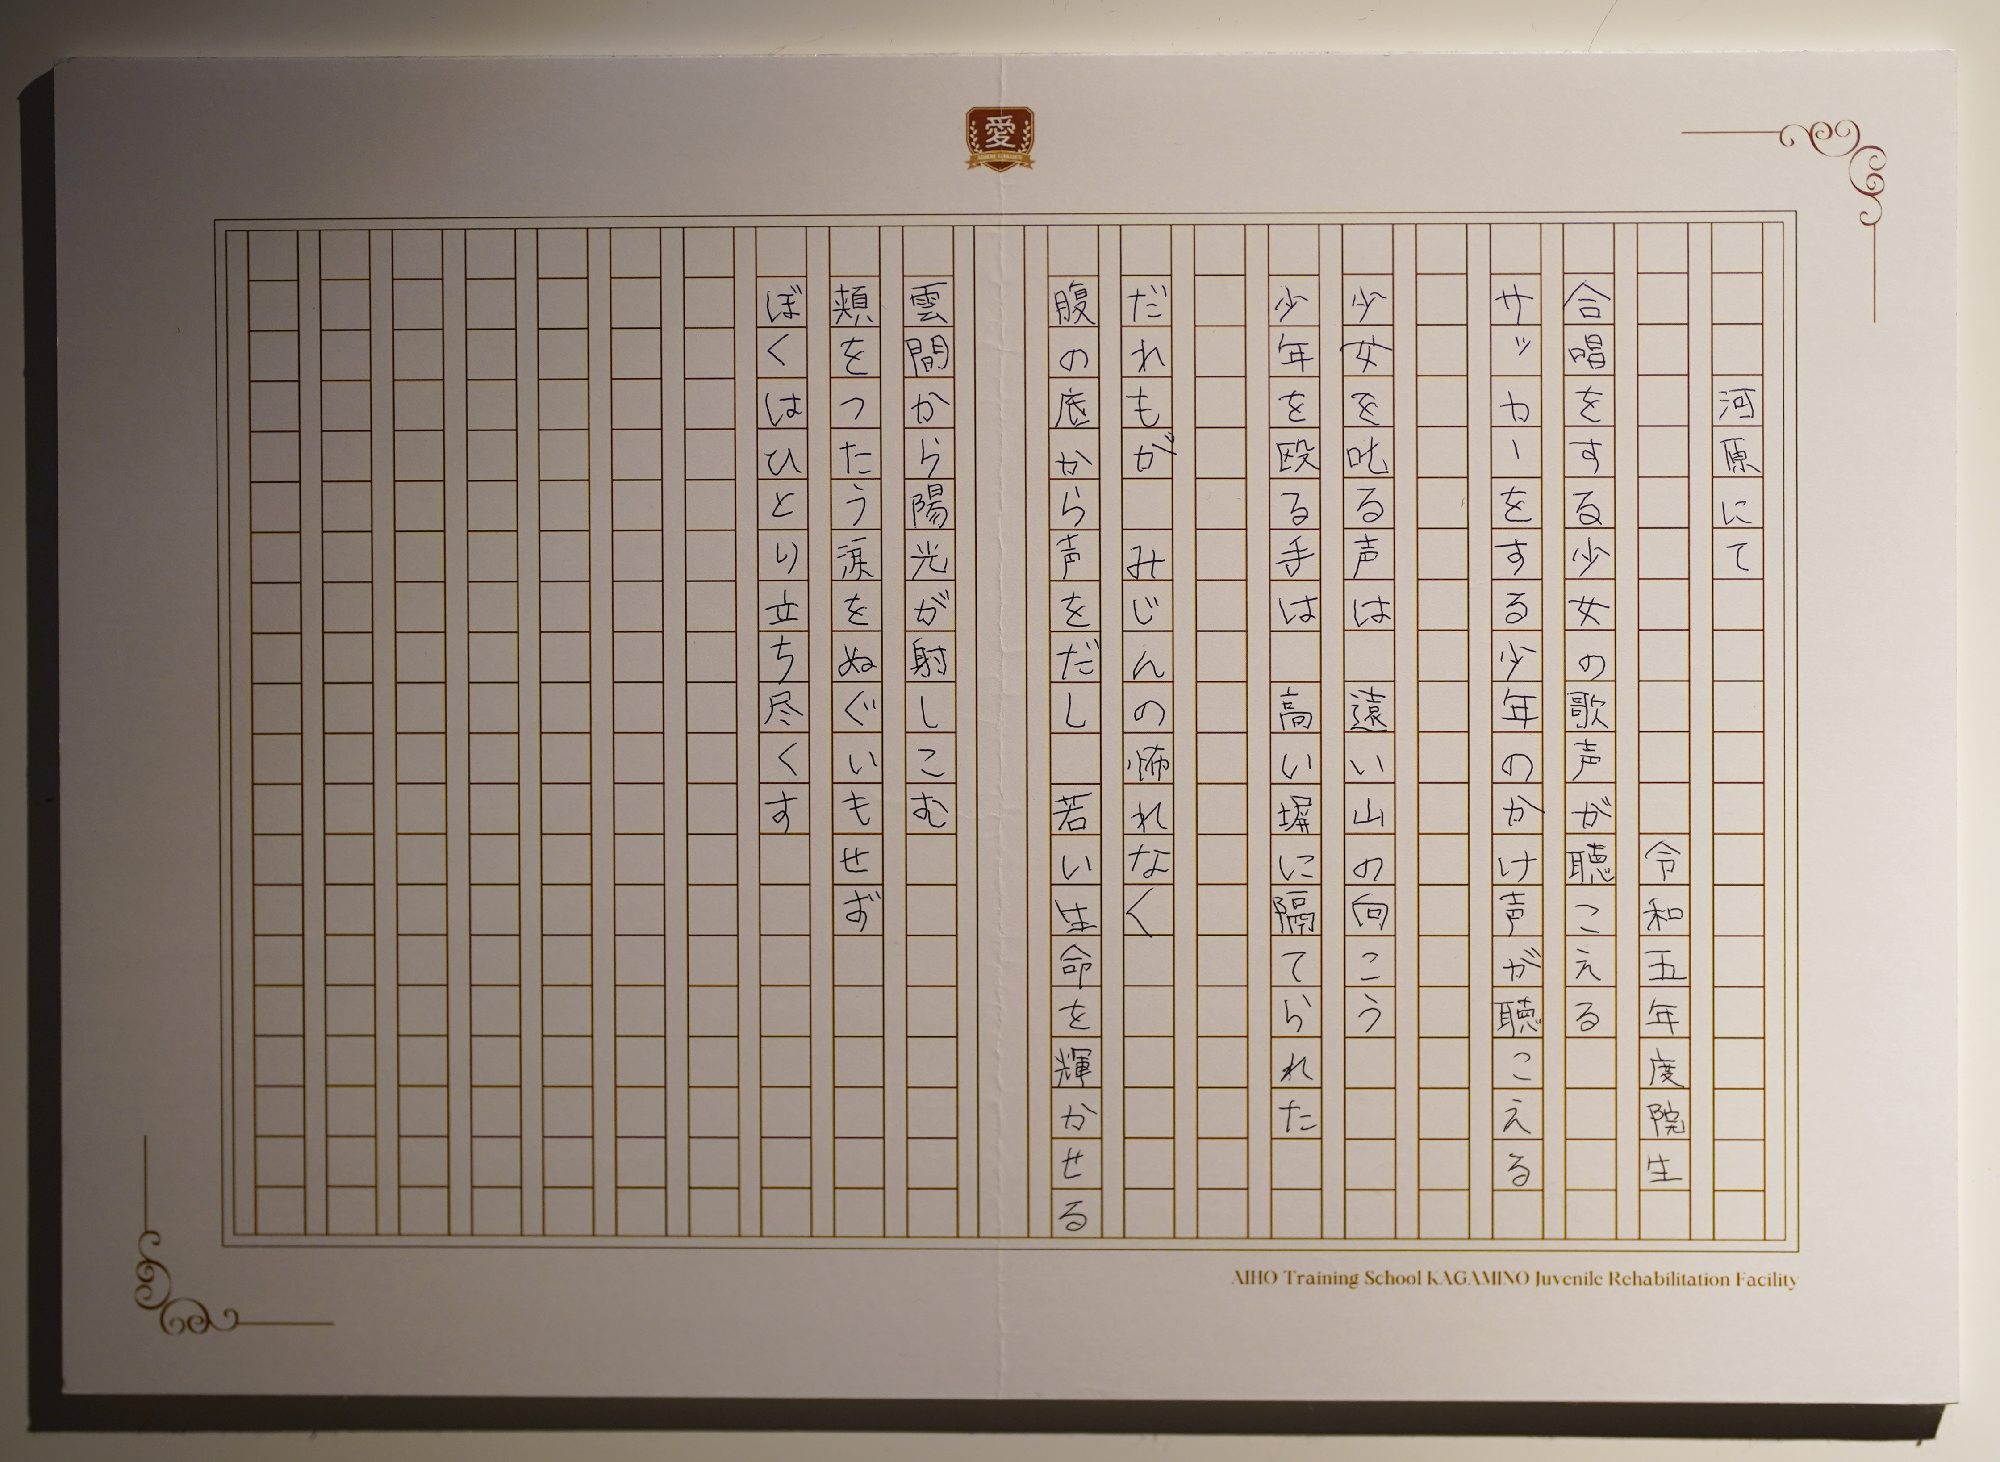 愛
河原にて
令和五年度院生
合唱をする少女の歌声が聴こえる
サッカーをする少年のかけ声が聴こえる
少女を叱る声は　遠い山の向こう
少年を殴る手は　高い塀に隔てられた
だれもが　みじんの怖れなく
腹の底から声をだし　若い生命を輝かせる
雲間から陽光が射しこむ
頬をつたう涙をぬぐいもせず
ぼくはひとり立ち尽くす
AIHO Training School KAGAMINO Juvenile Rehabilitation Facility